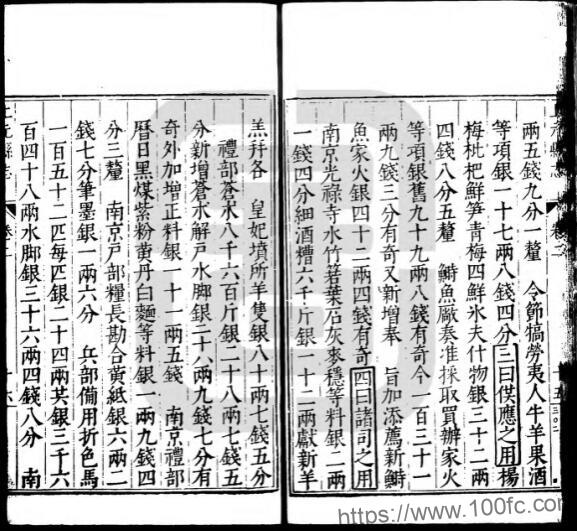 兩五錢九分一釐　令節犒勞夷人牛羊果酒
等項銀一十七兩八錢四分三曰供應之用楊
梅枇杷鮮笋青梅四鮮氷夫什物銀三十二兩
四錢八分五釐　鰣魚厰奏准採取買辦家火
等項銀舊九十九兩八錢有奇今一百三十一
兩九錢三分有奇又新增奉　旨加添薦新鰣
魚家火銀四十二兩四錢有奇四曰諸司之用
南京光祿寺水竹箬葉石灰麥穩等料銀二兩
一錢四分細酒糟六千斤銀一十二兩獻新羊
羔并各　皇妃墳所羊隻銀八十兩七錢五分
禮部蒼术八千六百斤銀二十八兩七錢五
分新增蒼术解戶水脚銀二十八兩九錢七分有
奇外加增正料銀一十一兩五錢　南京禮部
曆日黑煤紫粉黄丹白麵等料銀一兩九錢四
分三釐　南京戶部糧長勘合黄紙銀六兩二
錢七分筆墨銀一兩六分　兵部備用折色馬
一百五十二匹每匹銀二十四兩共銀三千六
百四十八兩水脚銀三十六兩四錢八分　南
https://www.100fc.com